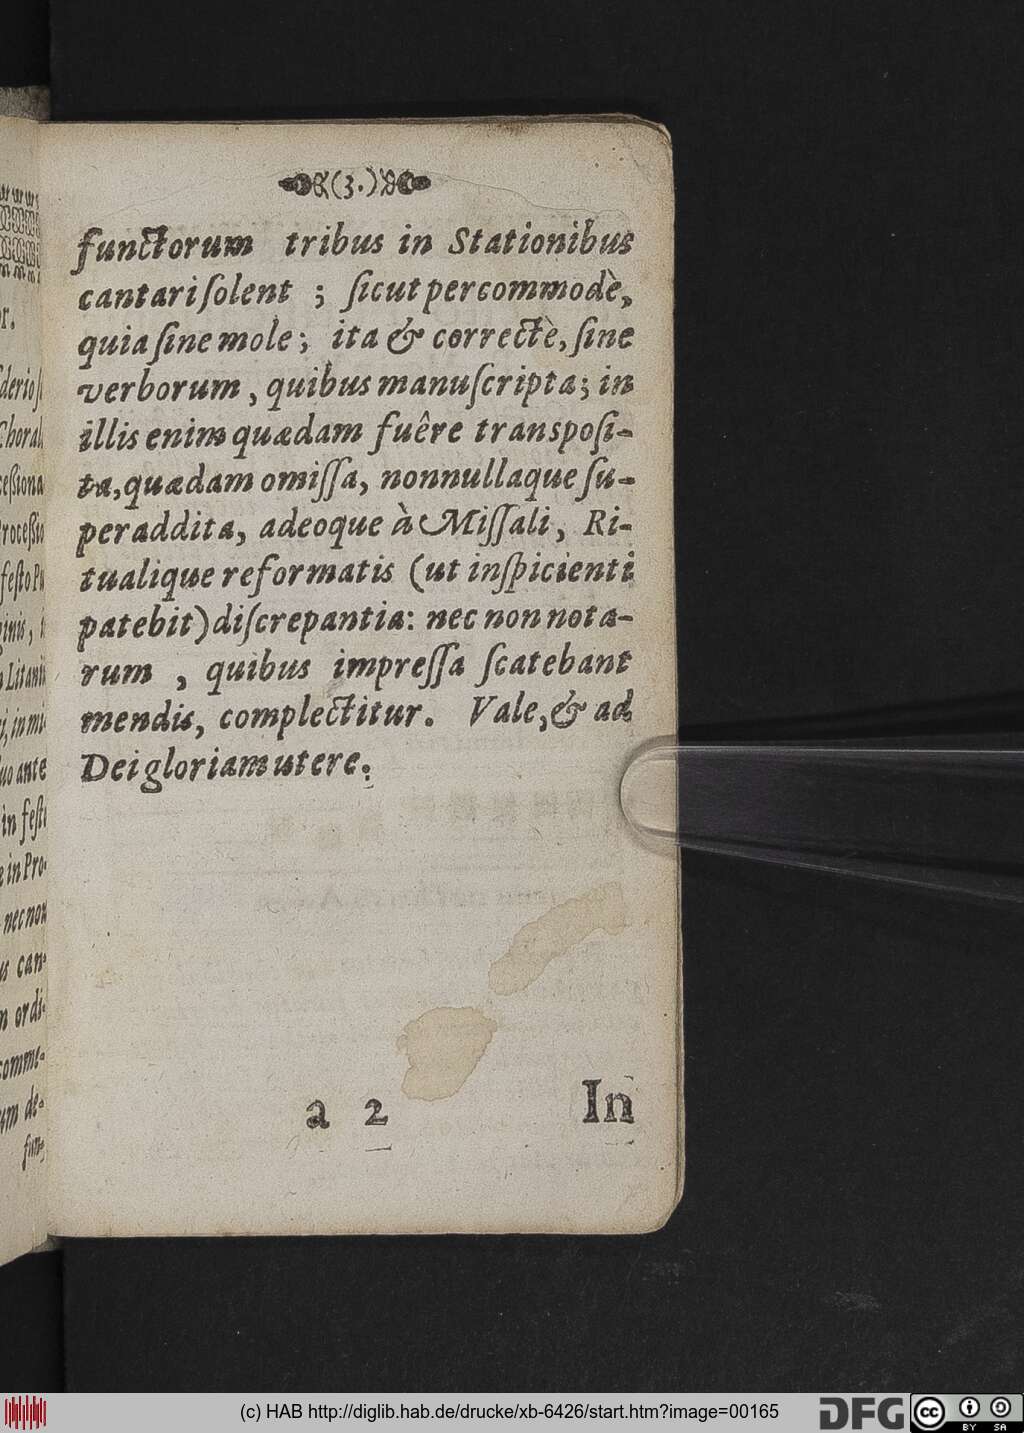 (3.)
functorum tribus in Stationibus
cantari ſolent ; ſicut percommodè,
quia ſine mole ; ita & correctè, ſine
verborum, quibus manuſcripta; in
illis enim quædam fuêre transpoſi-
ta, quædam omiſſa, nonnullaque ſu-
peraddita, adeoque à Miſſali, Ri-
tualique reformatis (ut inſpicienti
patebit) diſcrepantia: nec non nota-
rum , quibus impreſſa ſcatebant
mendis, complectitur. Vale, & ad
Dei gloriam utere.
a 2 In
r.
Choral
feſto Pu
ginis, i
in feſt
in Pro-
nec non
can-
ordi-
comme-
de-
fun-
(c) HAB http://diglib.hab.de/drucke/xb-6426/start.htm?image=00165
DFG
cc
BY SA